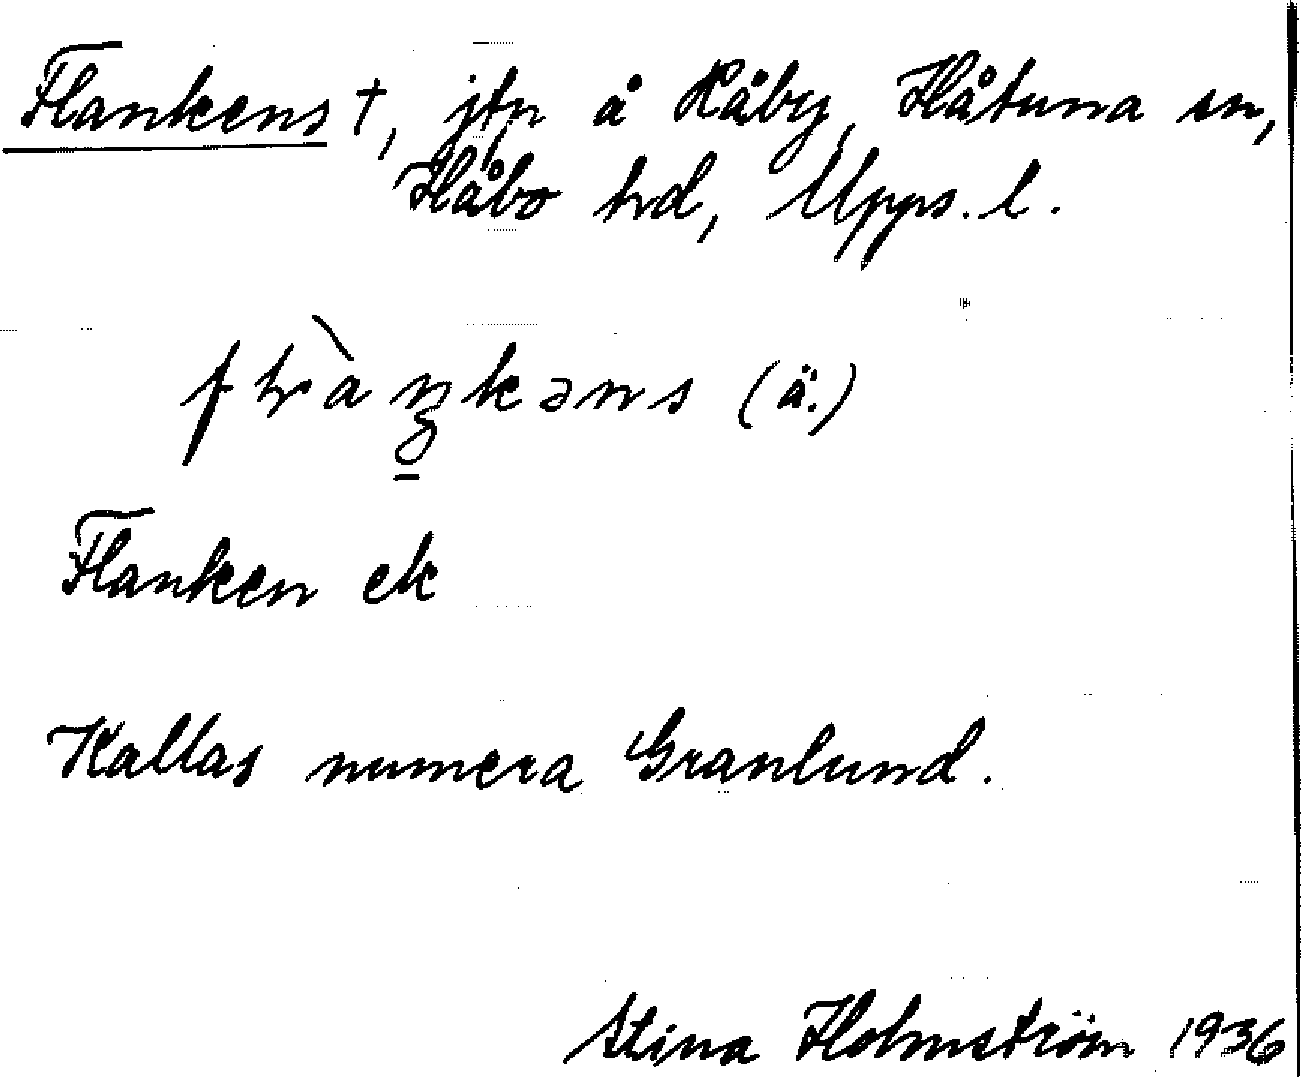 Flankens †, jtp å Råby, Håtuna sn,
Håbo hd, Upps. l.
(ä.)
Flanken ek
Kallas numera Granlund.
Stina Holmström 1936